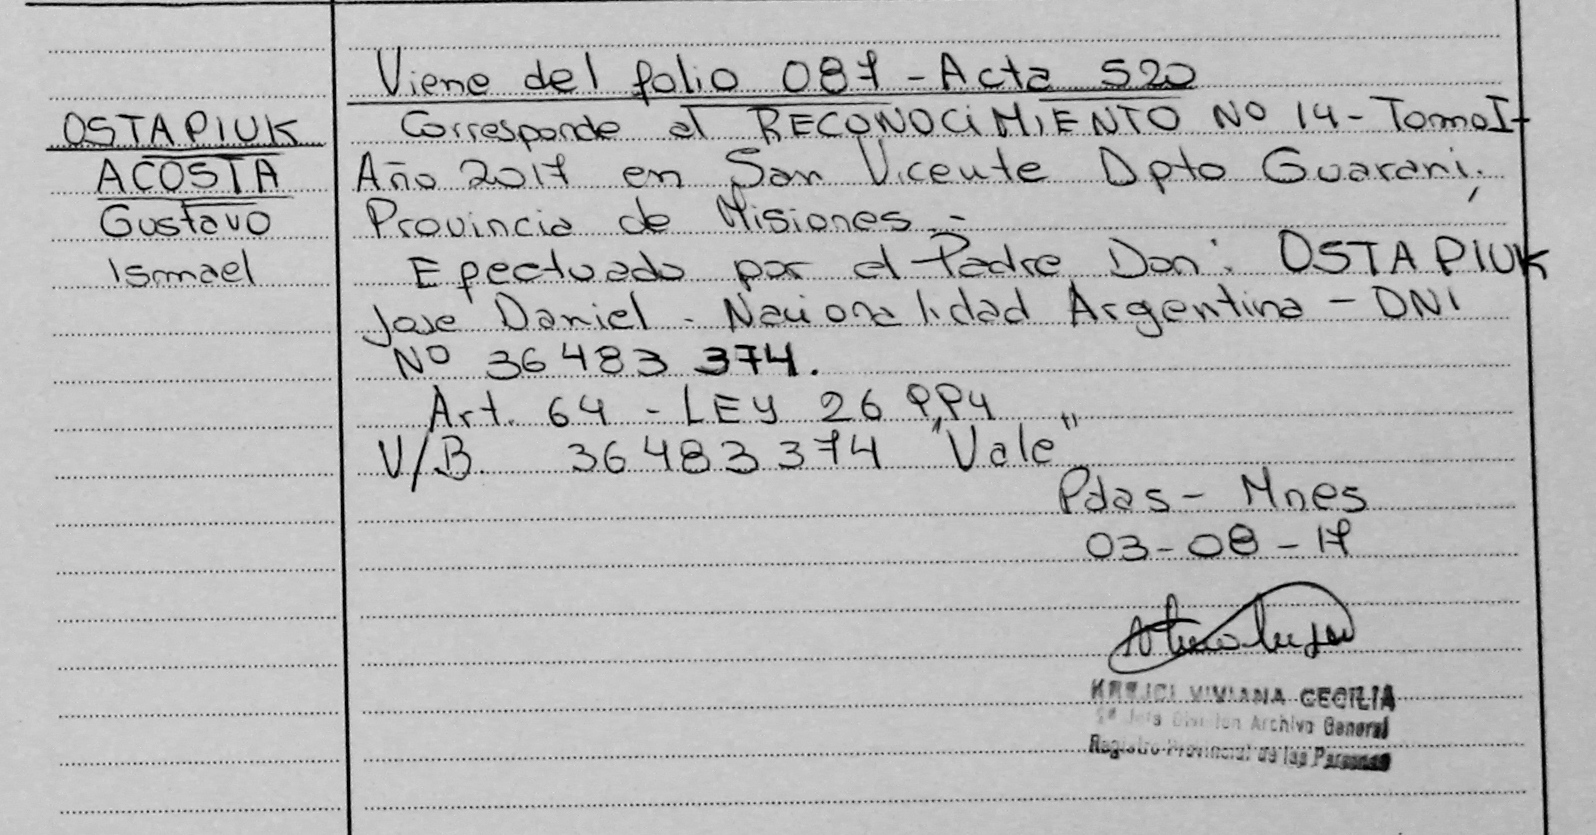 Viene del folio 087 - Acta 520
OSTAPIUK
ACOSTA
Gustavo
Ismael
Corresponde al RECONOCIMIENTO Nº 14 - Tomo I -
Año 2017 en San Vicente Dpto Guarani,
Provincia de Misiones. -
Efectuado por el Padre Don: OSTAPIUK
Jose Daniel - Nacionalidad Argentina - DNI
Nº 36483374.
Art. 64 - LEY 26994
V/B. 36483374 "Vale"
Pdas - Mnes
03-08-17
VIVIANA CECILIA
División Archivo General
Registro Provincial de las Personas